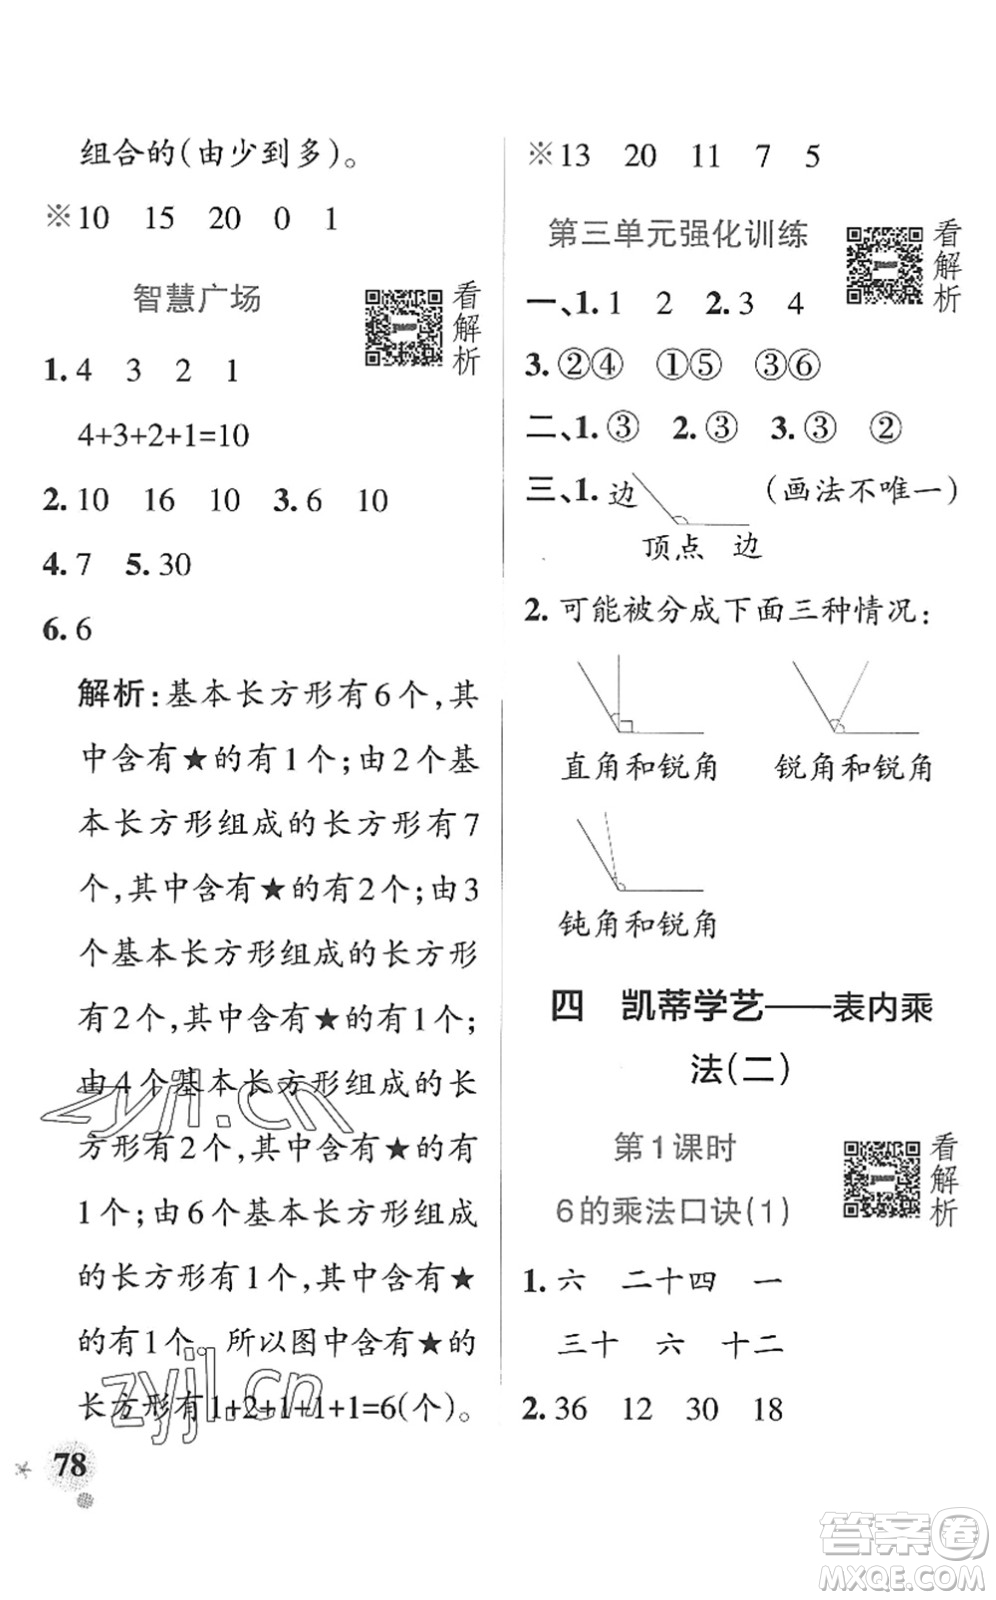 组合的(由少到多)。
※10 15 20 0 1
智慧广场
看解析
1. 4 3 2 1
4+3+2+1=10
2. 10 16 10 3. 6 10
4. 7 5. 30
6. 6
解析:基本长方形有6个,其
中含有★的有1个;由2个基
本长方形组成的长方形有7
个,其中含有★的有2个;由3
个基本长方形组成的长方形
有2个,其中含有★的有1个;
由4个基本长方形组成的长
方形有2个,其中含有★的有
1个;由6个基本长方形组成
的长方形有1个,其中含有★
的有1个。所以图中含有★的
长方形有1+2+1+1+1=6(个)。
78
※13 20 11 7 5
第三单元强化训练
看解析
一、1. 1 2 2. 3 4
3. ②④ ①⑤ ③⑥
二、1. ③ 2. ③ 3. ③ ②
三、1. 边 (画法不唯一)
顶点 边
2. 可能被分成下面三种情况:
直角和锐角 锐角和锐角
钝角和锐角
四 凯蒂学艺——表内乘
法(二)
第1课时
6的乘法口诀(1)
看解析
1. 六 二十四 一
三十 六 十二
2. 36 12 30 18
zyjl.cn
zyjl.cn
答案卷
MXQE.COM